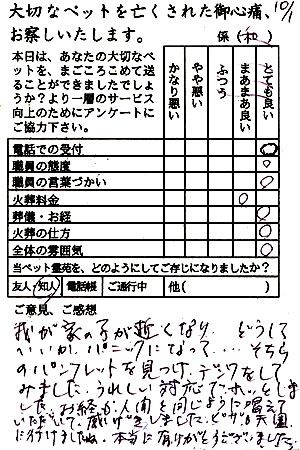 大切なペットを亡くされた御心痛、 10/1
お察しいたします。 係(和)
本日は、あなたの大切なペ
ットを、まごころこめて送
ることができましたでしょ
うか?より一層のサービス
向上のためにアンケートに
ご協力下さい。
かなり悪い
やや悪い
ふつう
まあまあ良い
とても良い
電話での受付
職員の態度
職員の言葉づかい
火葬料金
葬儀・お経
火葬の仕方
全体の雰囲気
当ペット霊苑を、どのようにしてご存じになりましたか?
友人 知人 電話帳 ご通行中 他( )
ご意見、ご感想
我が家の子が逝くなり、どうして
いいか、パニックになって...そちら
のパンフレットを見つけ、デンワをして
みました。うれしい対応でホッとしま
した。お経も人間と同じように唱えて
いただいて、感げきしました。
に行けましたね。本当に有りがとうございました。